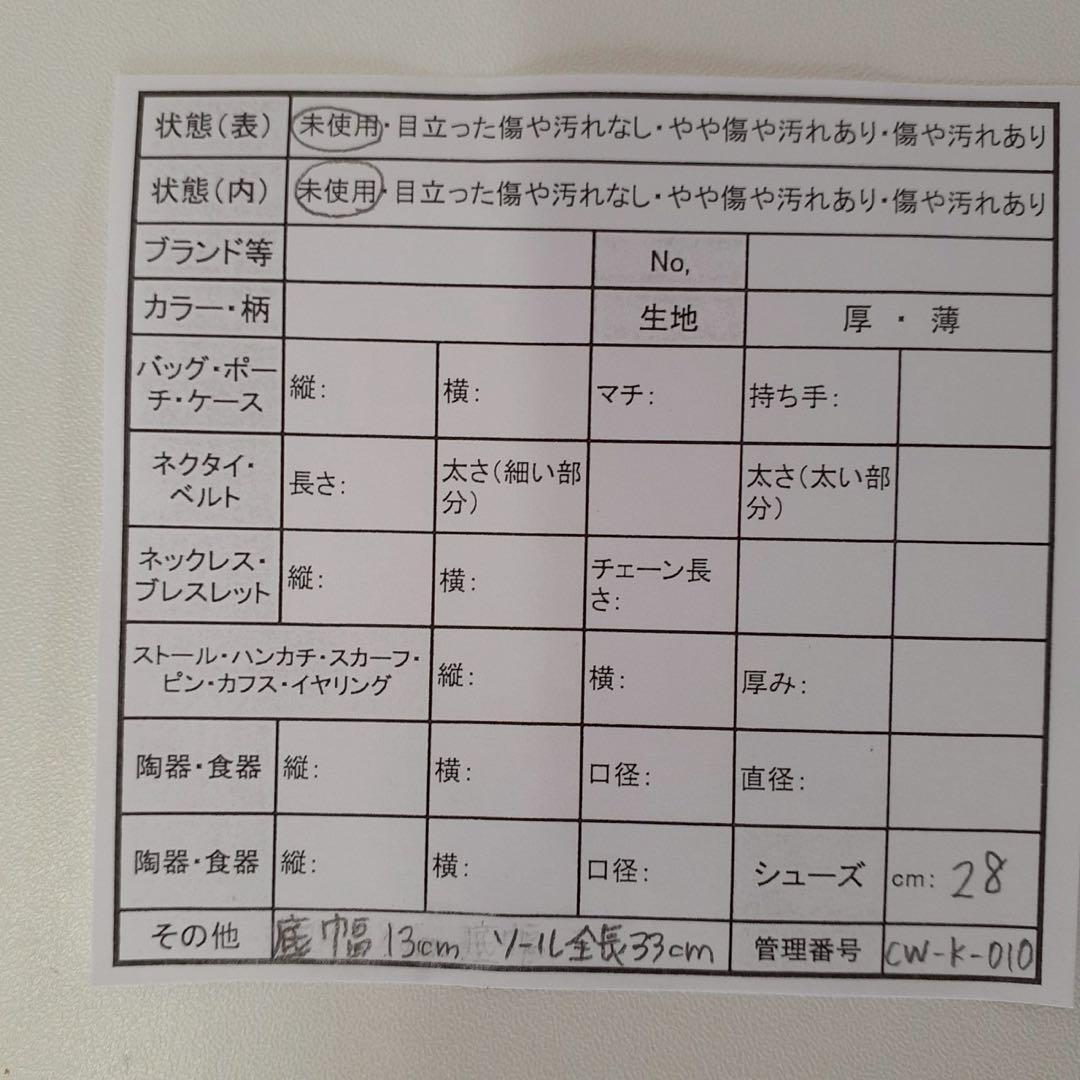 状態(表) 未使用・目立った傷や汚れなし・やや傷や汚れあり・傷や汚れあり
状態(内) 未使用・目立った傷や汚れなし・やや傷や汚れあり・傷や汚れあり
ブランド等 No,
カラー・柄 生地 厚・薄
バッグ・ポー
チ・ケース
縦: 横: マチ: 持ち手:
ネクタイ・
ベルト
長さ:
太さ(細い部
分)
太さ(太い部
分)
ネックレス・
ブレスレット
縦: 横:
チェーン長
さ:
ストール・ハンカチ・スカーフ・
ピン・カフス・イヤリング
縦: 横: 厚み:
陶器・食器 縦: 横: 口径: 直径:
陶器・食器 縦: 横: 口径: シューズ cm: 28
その他 底幅13cm ソール全長33cm 管理番号 CW-K-010